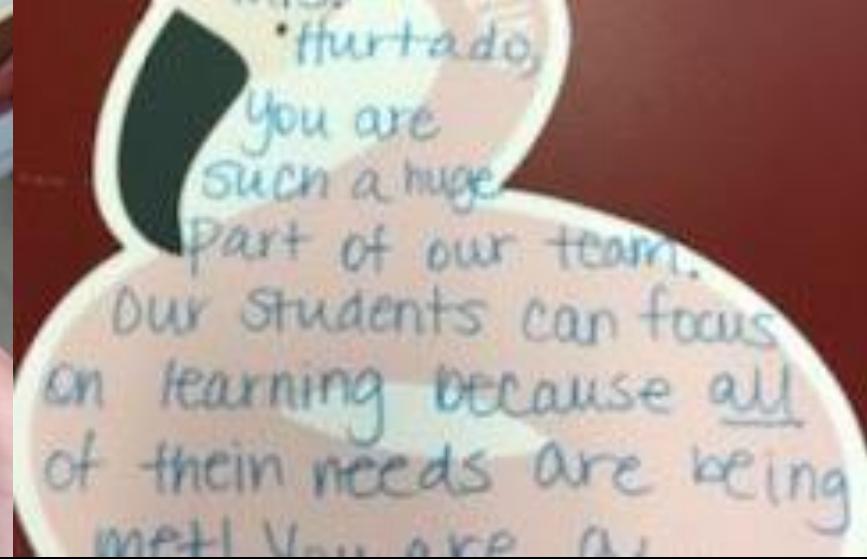 Hurtado,
you are
such a huge
part of our team.
Our students can focus
on learning because all
of thein needs are being
met! You are a